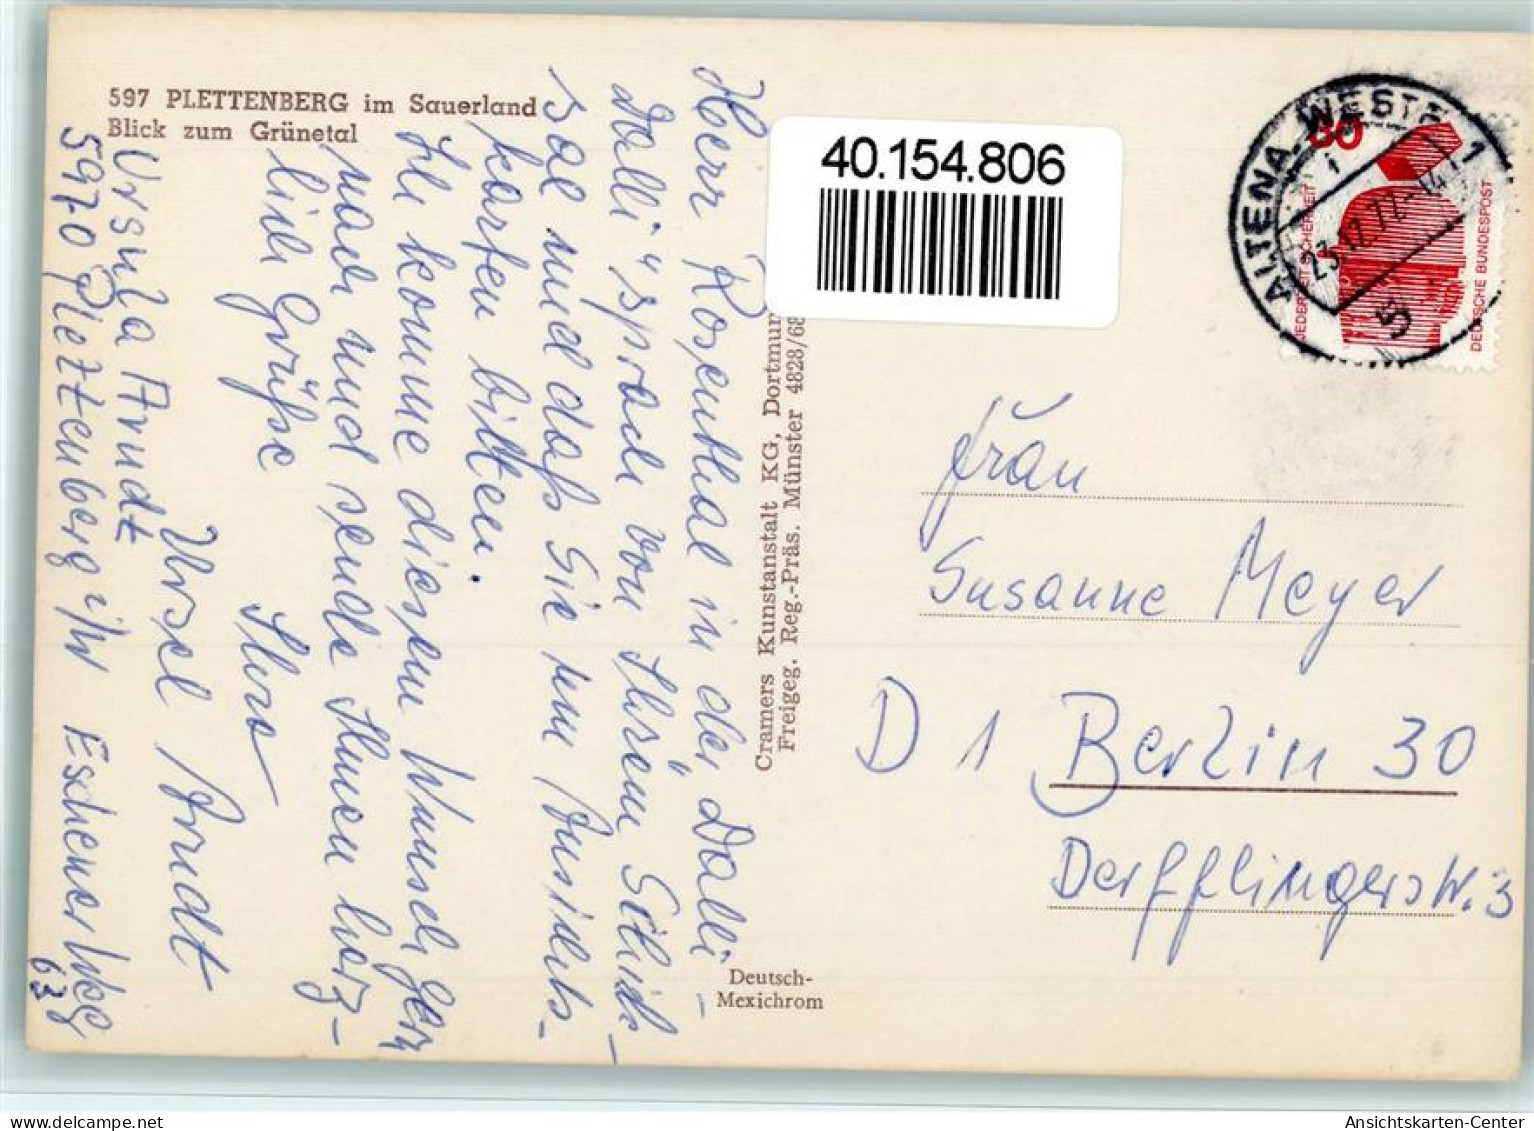 597 PLETTENBERG im Sauerland
Blick zum Grünetal
Herr Rosenthal in der „Dalli-
Dalli“ sprach von Ihrem Schick-
sal und daß Sie um Ansichts-
karten bitten.
Ich komme diesem Wunsch gern
nach und sende Ihnen herz-
lich Grüße
Ihre
Ursel Arndt
Ursula Arndt
5970 Plettenberg i/W Eschener Weg
63
Cramers Kunstanstalt KG, Dortmun
Freigeg. Reg.-Präs. Münster 4828/68
Deutsch-
Mexichrom
40.154.806
ALTENA, WESTF 1
23.12.72-14
DEUTSCHE BUNDESPOST
Frau
Susanne Meyer
D 1 Berlin 30
Derfflingerstr. 3
Ansichtskarten-Center